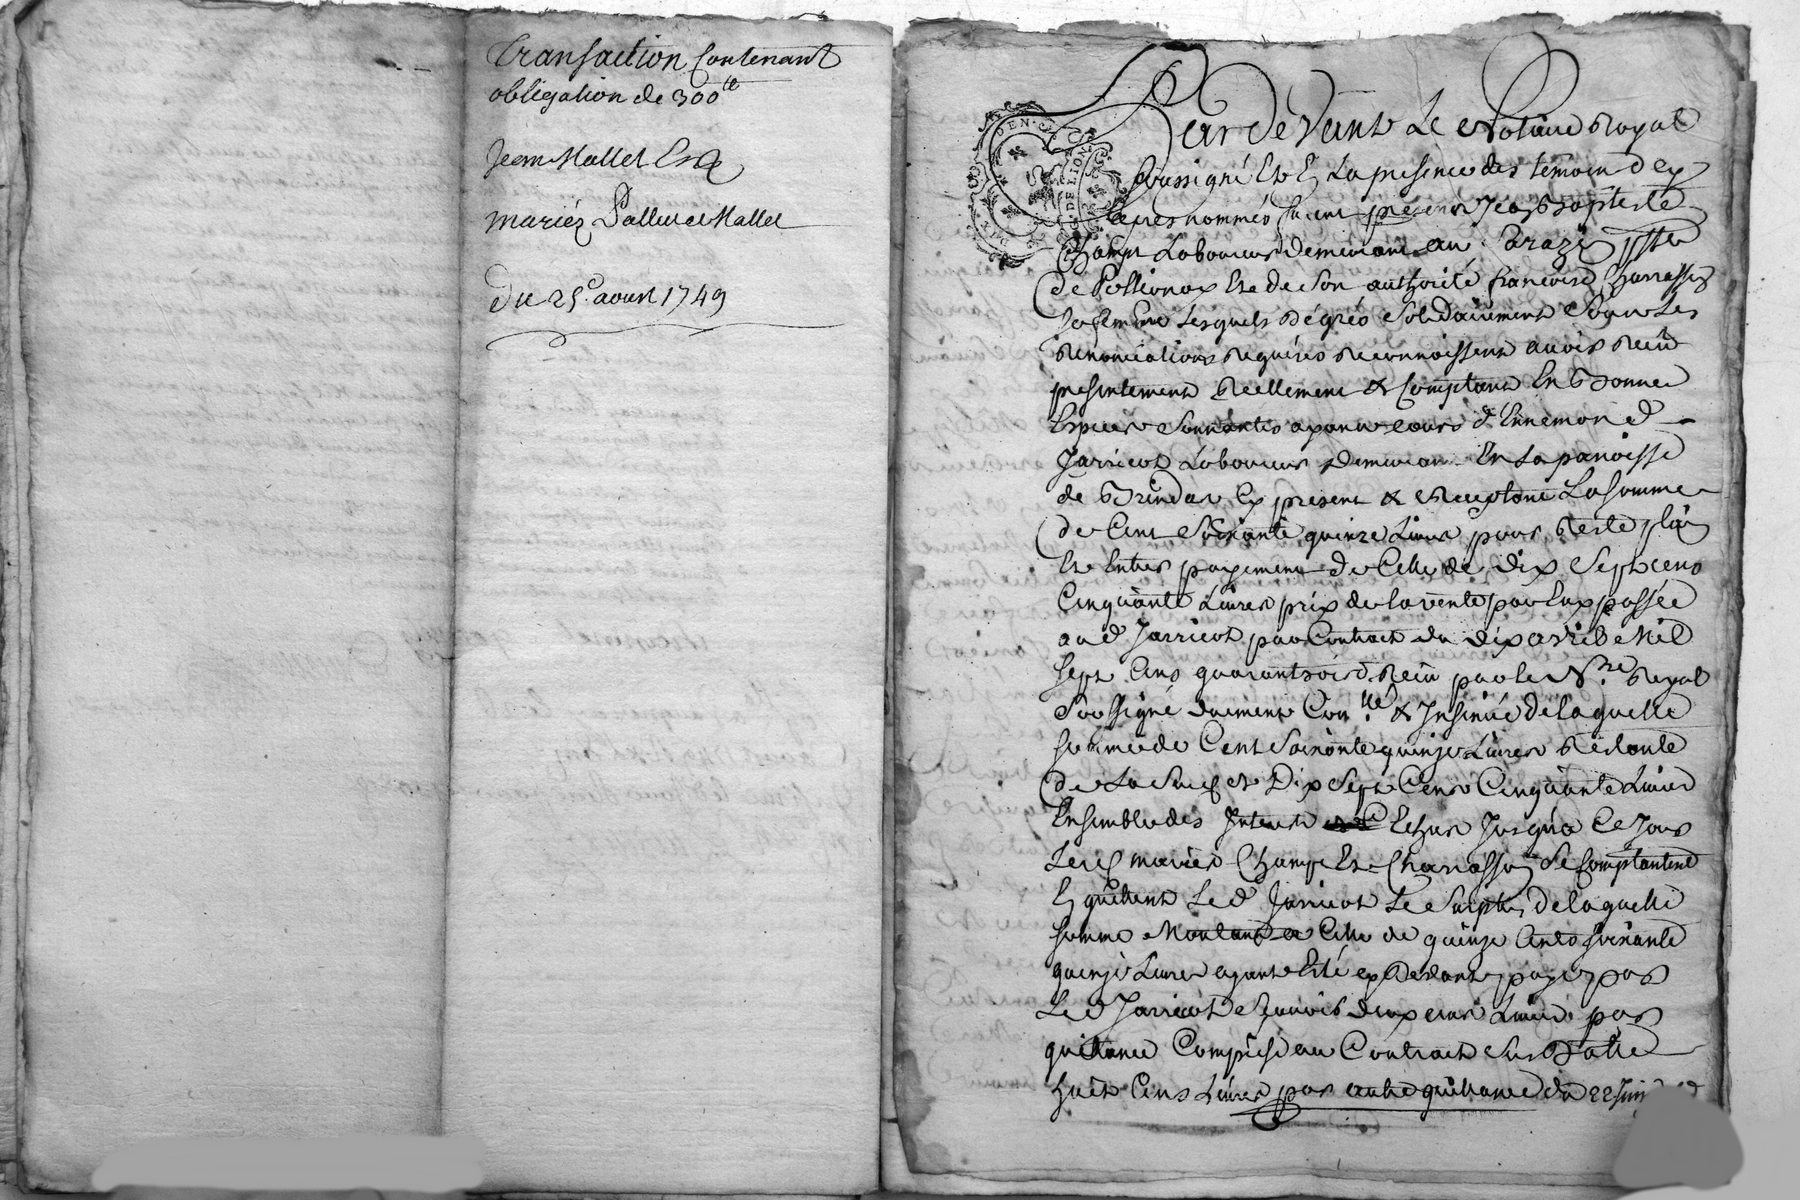 Transaction Contenant
obligation de 300ᵗᵗ
Jean Mallet Et
mariéz Mallet
Du 25ᵉ avril 1749
GEN. DE LION
Pardevant Le Notaire Royal
Soussigné Et En La presence des temoins
apres nommés furent presens Jean Baptiste
Champt Laboureur demeurant au
de Pollionay Et de Son authorité francoise Charasson
Sa femme Lesquels de gré Solidairement Sous Les
Renonciations Requises Reconnoissent avoir Receu
presentement Reellement & Comptant En Bonnes
Especes Sonnantes ayant cours d'Ennemond
Jarricot Laboureur demeurant En La paroisse
de Brindas Cy present & acceptant La Somme
de Cent Soixante quinze Livres pour Reste plain
Et Entier payement de Celle de Dix Sept cens
Cinquante Livres prix de la vente par Eux passée
aud Jarricot par Contract du dix avril Mil
Sept Cens quarante trois Receu par le Nʳᵉ Royal
Soussigné duement Conᵗˡˡᵉ & Insinué de laquelle
Somme de Cent Soixante quinze Livres Restante
De La Susd et Dix Sept Cens Cinquante Livres
Ensemble des Interets Echus Jusqu'a Ce Jour
Lesd mariés Champt Et Charasson Se Comptantent
En quittent Led Jarricot Le Surplus de laquelle
Somme Montant a Celle de quinze Cents Soixante
quinze Livres ayant Esté cy Devant payez par
Led Jarricot Scavoir deux cens Livres par
quittance Comprise au Contract Sus Datté
huit Cens Livres par autre quittance du 22 Juin